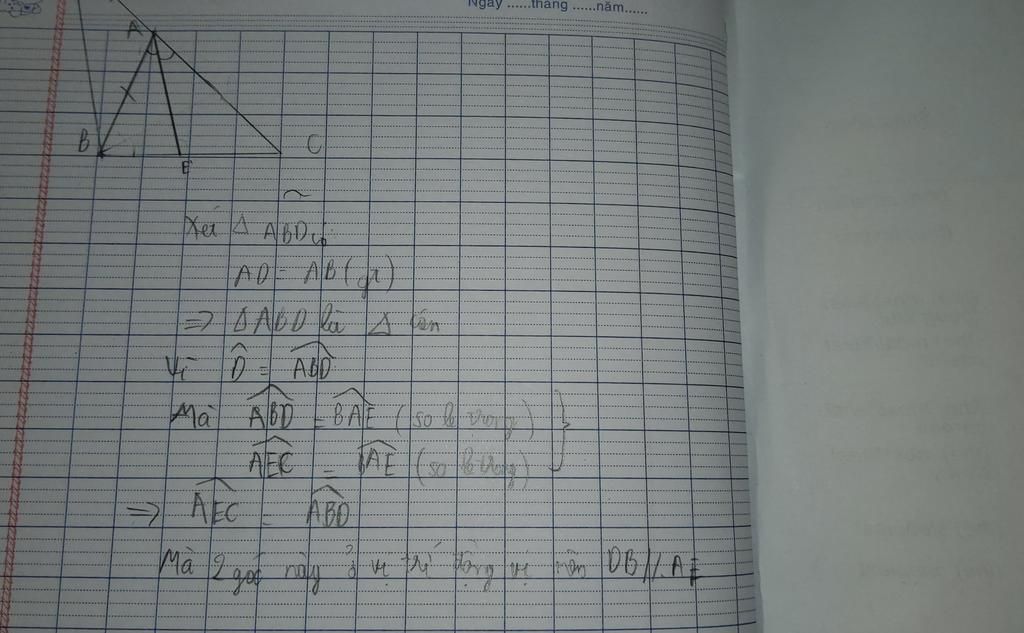 Ngày ......tháng ......năm......
A
B
E
C
Xét Δ ABD có
AD = AB (gt)
=> Δ ABD là Δ cân
Vì D = ABD
Mà ABD = BAE (so le trong)
AEC = BAE (so le trong)
=> AEC = ABD
Mà 2 góc này ở vị trí đồng vị nên DB // AE